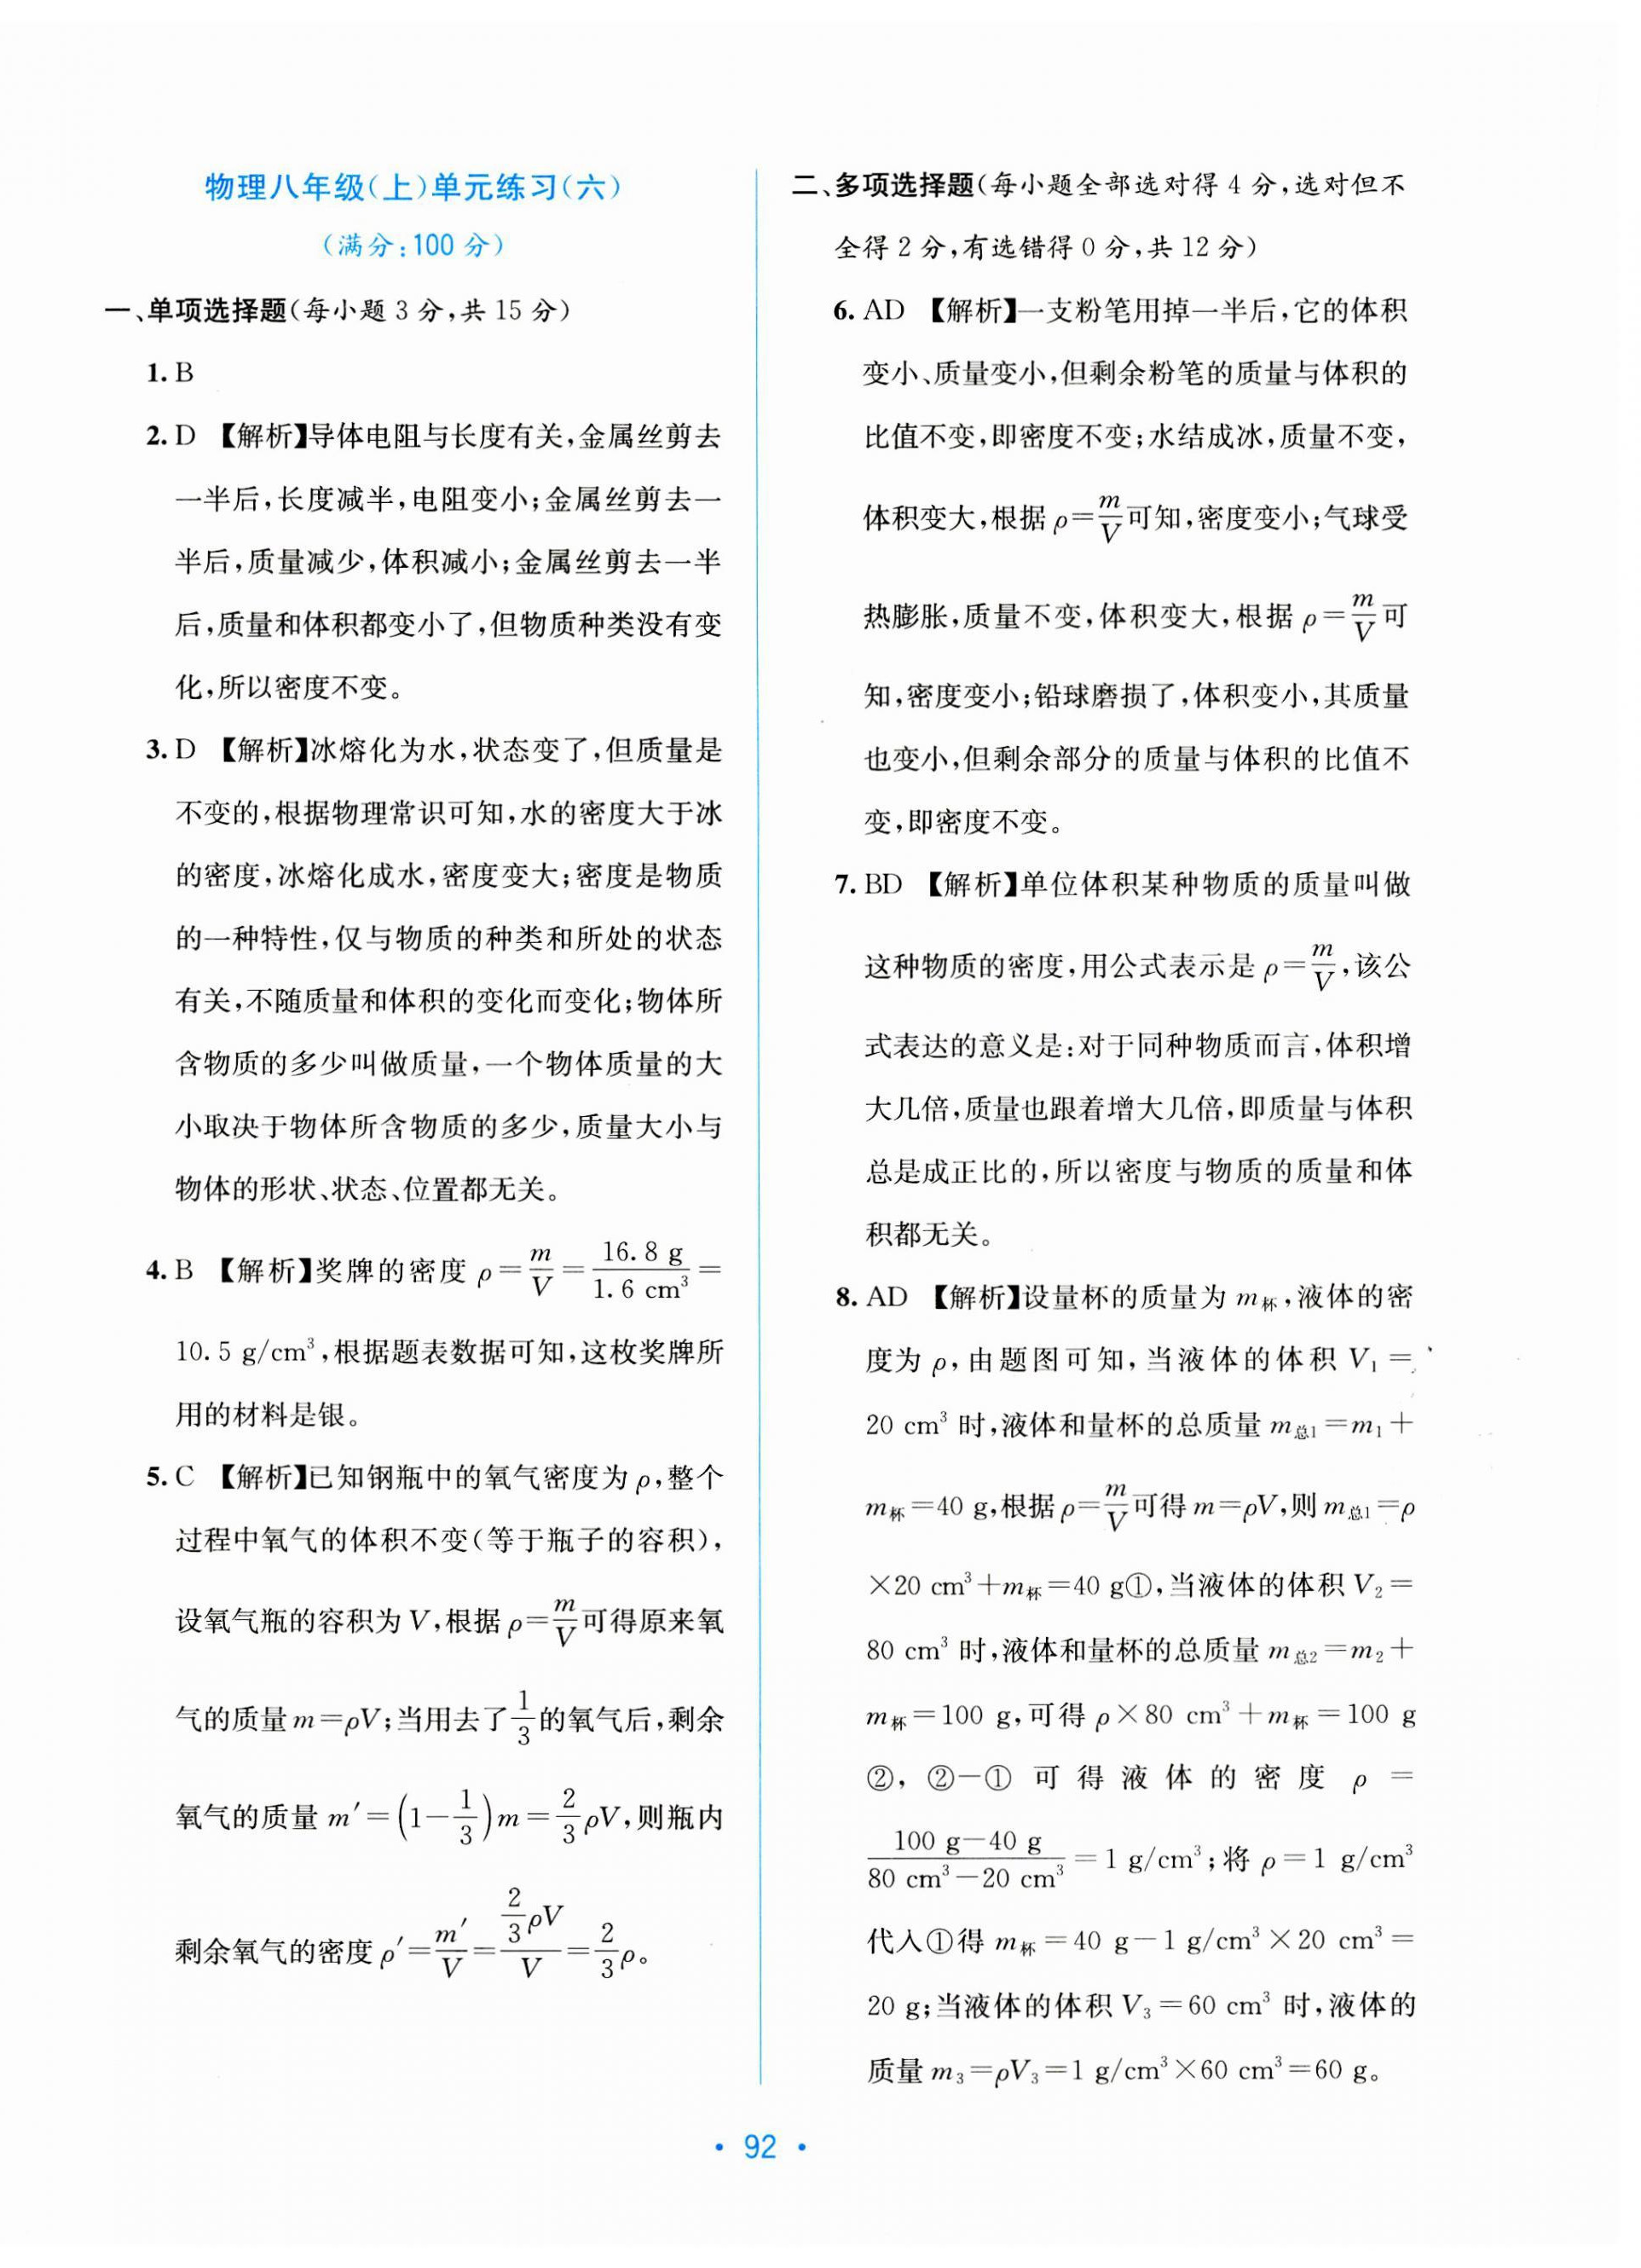 物理八年级(上)单元练习(六)
(满分:100 分)
一、单项选择题(每小题 3 分,共 15 分)
1. B
2. D 【解析】导体电阻与长度有关,金属丝剪去
一半后,长度减半,电阻变小;金属丝剪去一
半后,质量减少,体积减小;金属丝剪去一半
后,质量和体积都变小了,但物质种类没有变
化,所以密度不变。
3. D 【解析】冰熔化为水,状态变了,但质量是
不变的,根据物理常识可知,水的密度大于冰
的密度,冰熔化成水,密度变大;密度是物质
的一种特性,仅与物质的种类和所处的状态
有关,不随质量和体积的变化而变化;物体所
含物质的多少叫做质量,一个物体质量的大
小取决于物体所含物质的多少,质量大小与
物体的形状、状态、位置都无关。
4. B 【解析】奖牌的密度 ρ=m/V=16.8 g/1.6 cm³=
10.5 g/cm³,根据题表数据可知,这枚奖牌所
用的材料是银。
5. C 【解析】已知钢瓶中的氧气密度为 ρ,整个
过程中氧气的体积不变(等于瓶子的容积),
设氧气瓶的容积为 V,根据 ρ=m/V可得原来氧
气的质量 m=ρV;当用去了1/3的氧气后,剩余
氧气的质量 m′=(1−1/3)m=2/3ρV,则瓶内
剩余氧气的密度 ρ′=m′/V=(2/3ρV)/V=2/3ρ。
二、多项选择题(每小题全部选对得 4 分,选对但不
全得 2 分,有选错得 0 分,共 12 分)
6. AD 【解析】一支粉笔用掉一半后,它的体积
变小、质量变小,但剩余粉笔的质量与体积的
比值不变,即密度不变;水结成冰,质量不变,
体积变大,根据 ρ=m/V可知,密度变小;气球受
热膨胀,质量不变,体积变大,根据 ρ=m/V可
知,密度变小;铅球磨损了,体积变小,其质量
也变小,但剩余部分的质量与体积的比值不
变,即密度不变。
7. BD 【解析】单位体积某种物质的质量叫做
这种物质的密度,用公式表示是 ρ=m/V,该公
式表达的意义是:对于同种物质而言,体积增
大几倍,质量也跟着增大几倍,即质量与体积
总是成正比的,所以密度与物质的质量和体
积都无关。
8. AD 【解析】设量杯的质量为 m杯,液体的密
度为 ρ,由题图可知,当液体的体积 V₁=
20 cm³ 时,液体和量杯的总质量 m总1=m₁+
m杯=40 g,根据 ρ=m/V可得 m=ρV,则 m总1=ρ
×20 cm³+m杯=40 g①,当液体的体积 V₂=
80 cm³ 时,液体和量杯的总质量 m总2=m₂+
m杯=100 g,可得 ρ×80 cm³+m杯=100 g
②, ②−① 可得液体的密度 ρ=
(100 g−40 g)/(80 cm³−20 cm³)=1 g/cm³;将 ρ=1 g/cm³
代入①得 m杯=40 g−1 g/cm³×20 cm³=
20 g;当液体的体积 V₃=60 cm³ 时,液体的
质量 m₃=ρV₃=1 g/cm³×60 cm³=60 g。
• 92 •